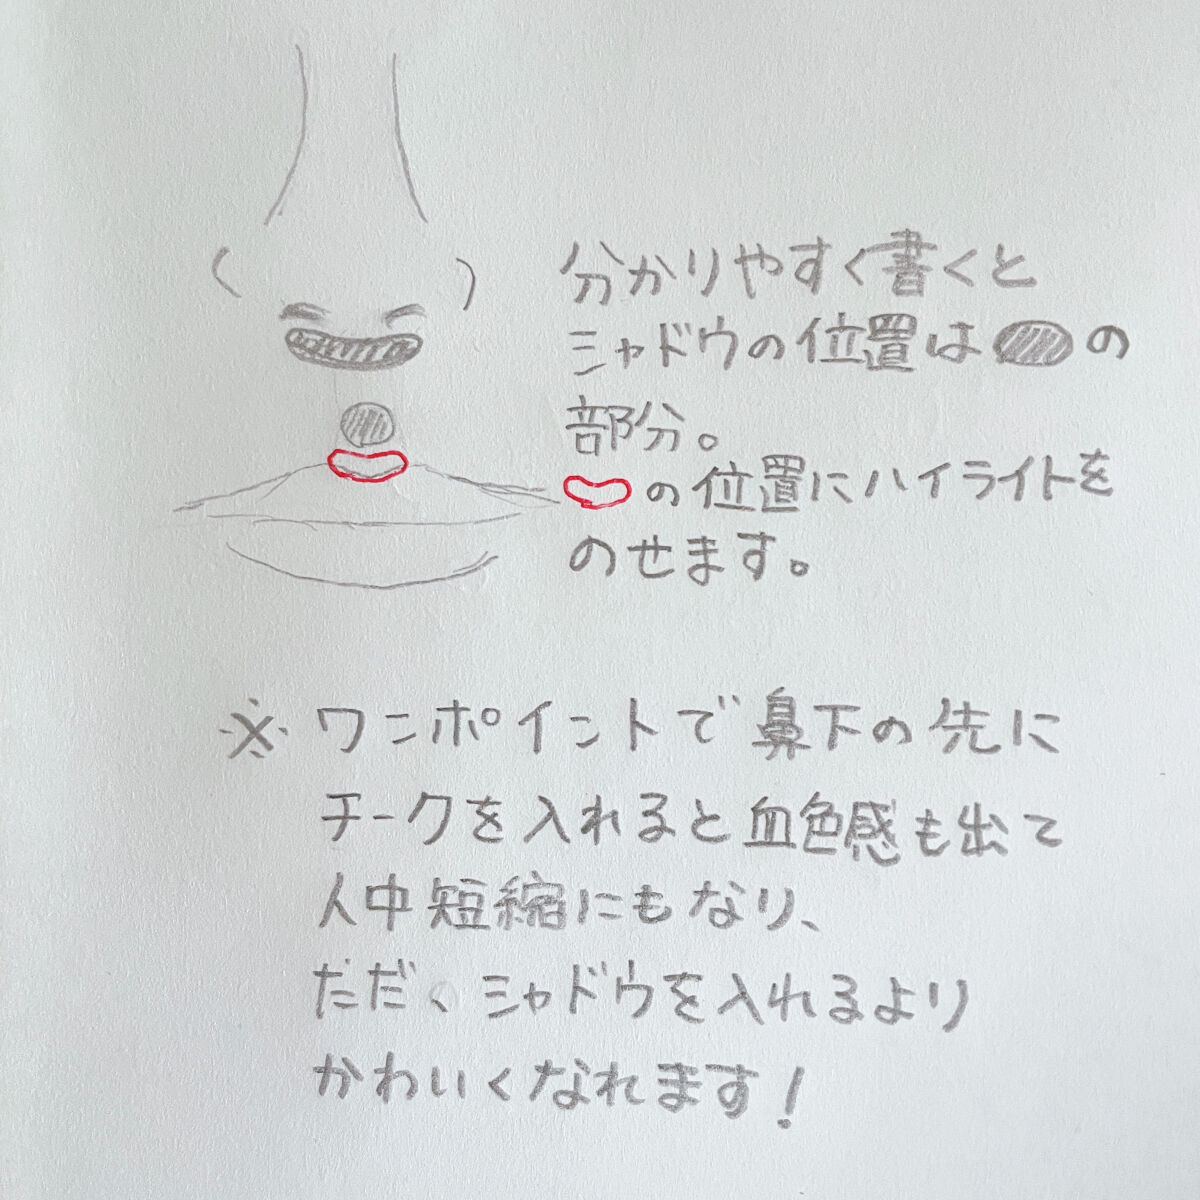 分かりやすく書くと
シャドウの位置は の
部分。
の位置にハイライトを
のせます。
※ワンポイントで鼻下の先に
チークを入れると血色感も出て
人中短縮にもなり、
ただ、シャドウを入れるより
かわいくなれます!